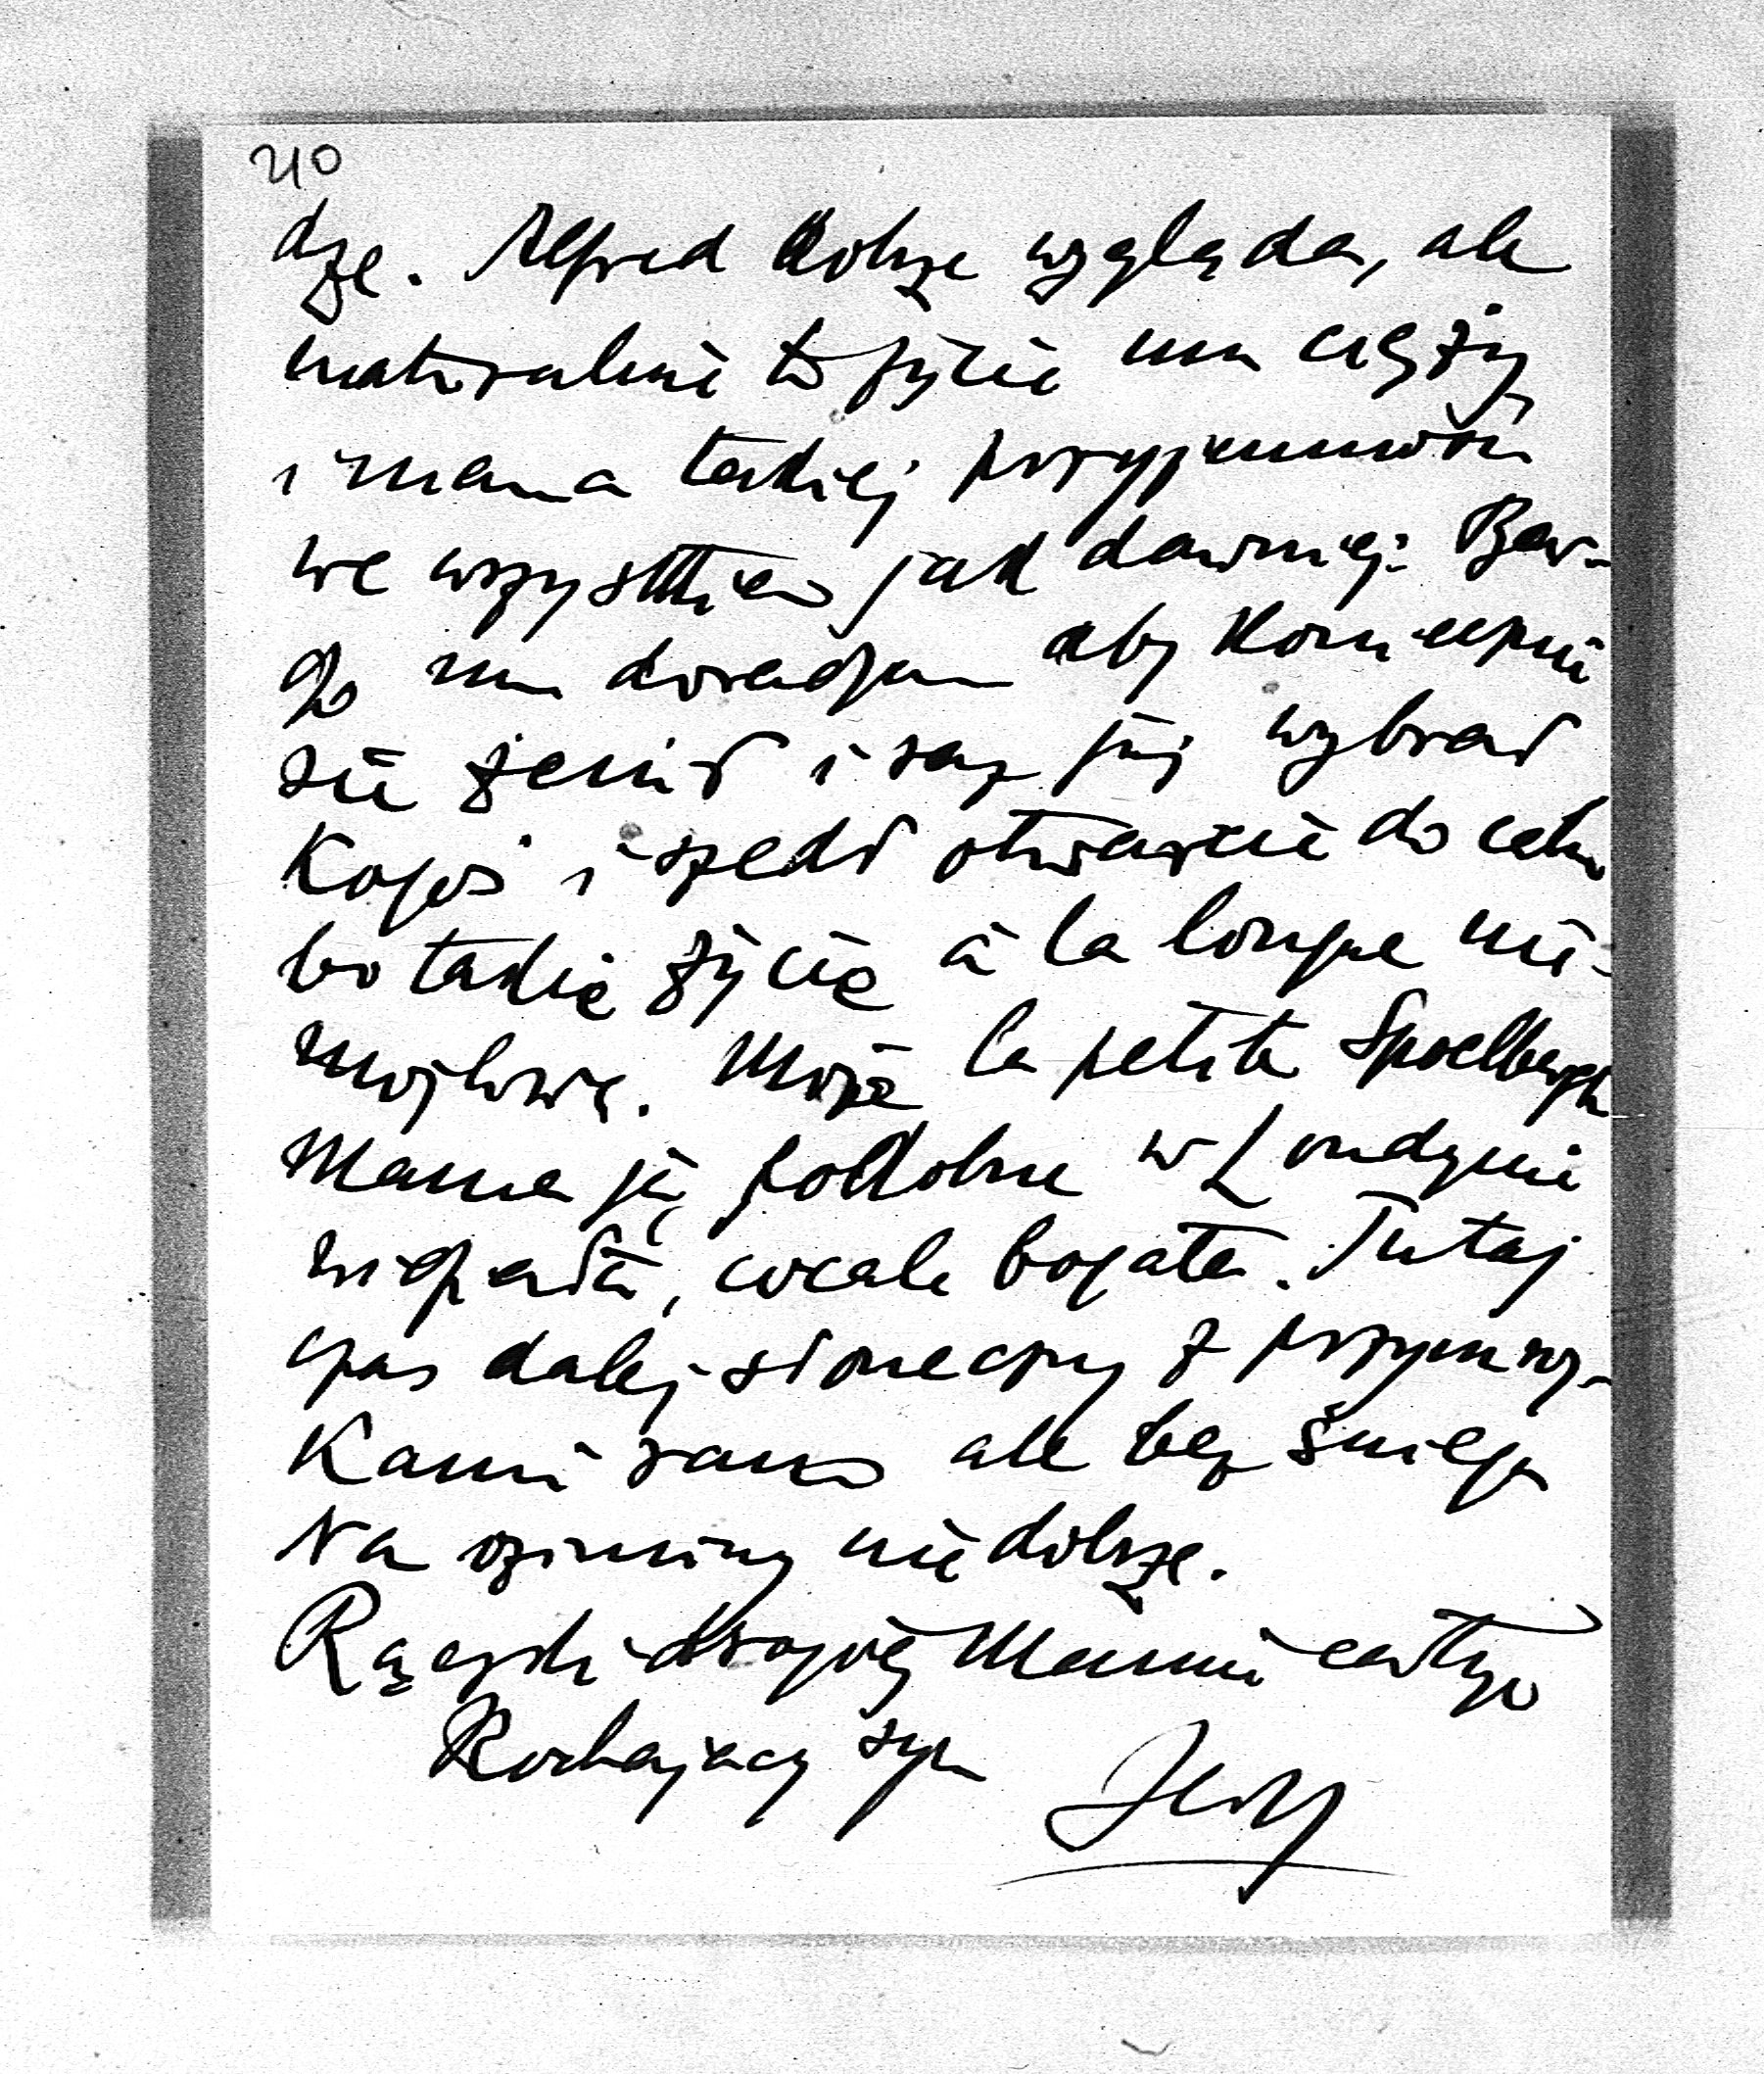 210
dze. Alfred dobrze wygląda, ale
naturalnie to życie mu cięży
i mana takiej przyjemności
we wszystkiem jak dawniej. Bar-
dzo mu doradzam aby koniecznie
się żenił i raz już wybrał
kogoś i szedł otwarcie do celu
bo takie życie à la longue nie-
możliwe. Może la petite Spoelbergh
Mama ją podobno w Londynie
widziała, wcale bogata. Tutaj
czas dalej słoneczny z przymroz-
kami rano ale bez śniegu
Na oziminy nie dobrze.
Rączki drogiej Mamie całuję
Kochający syn Jerzy